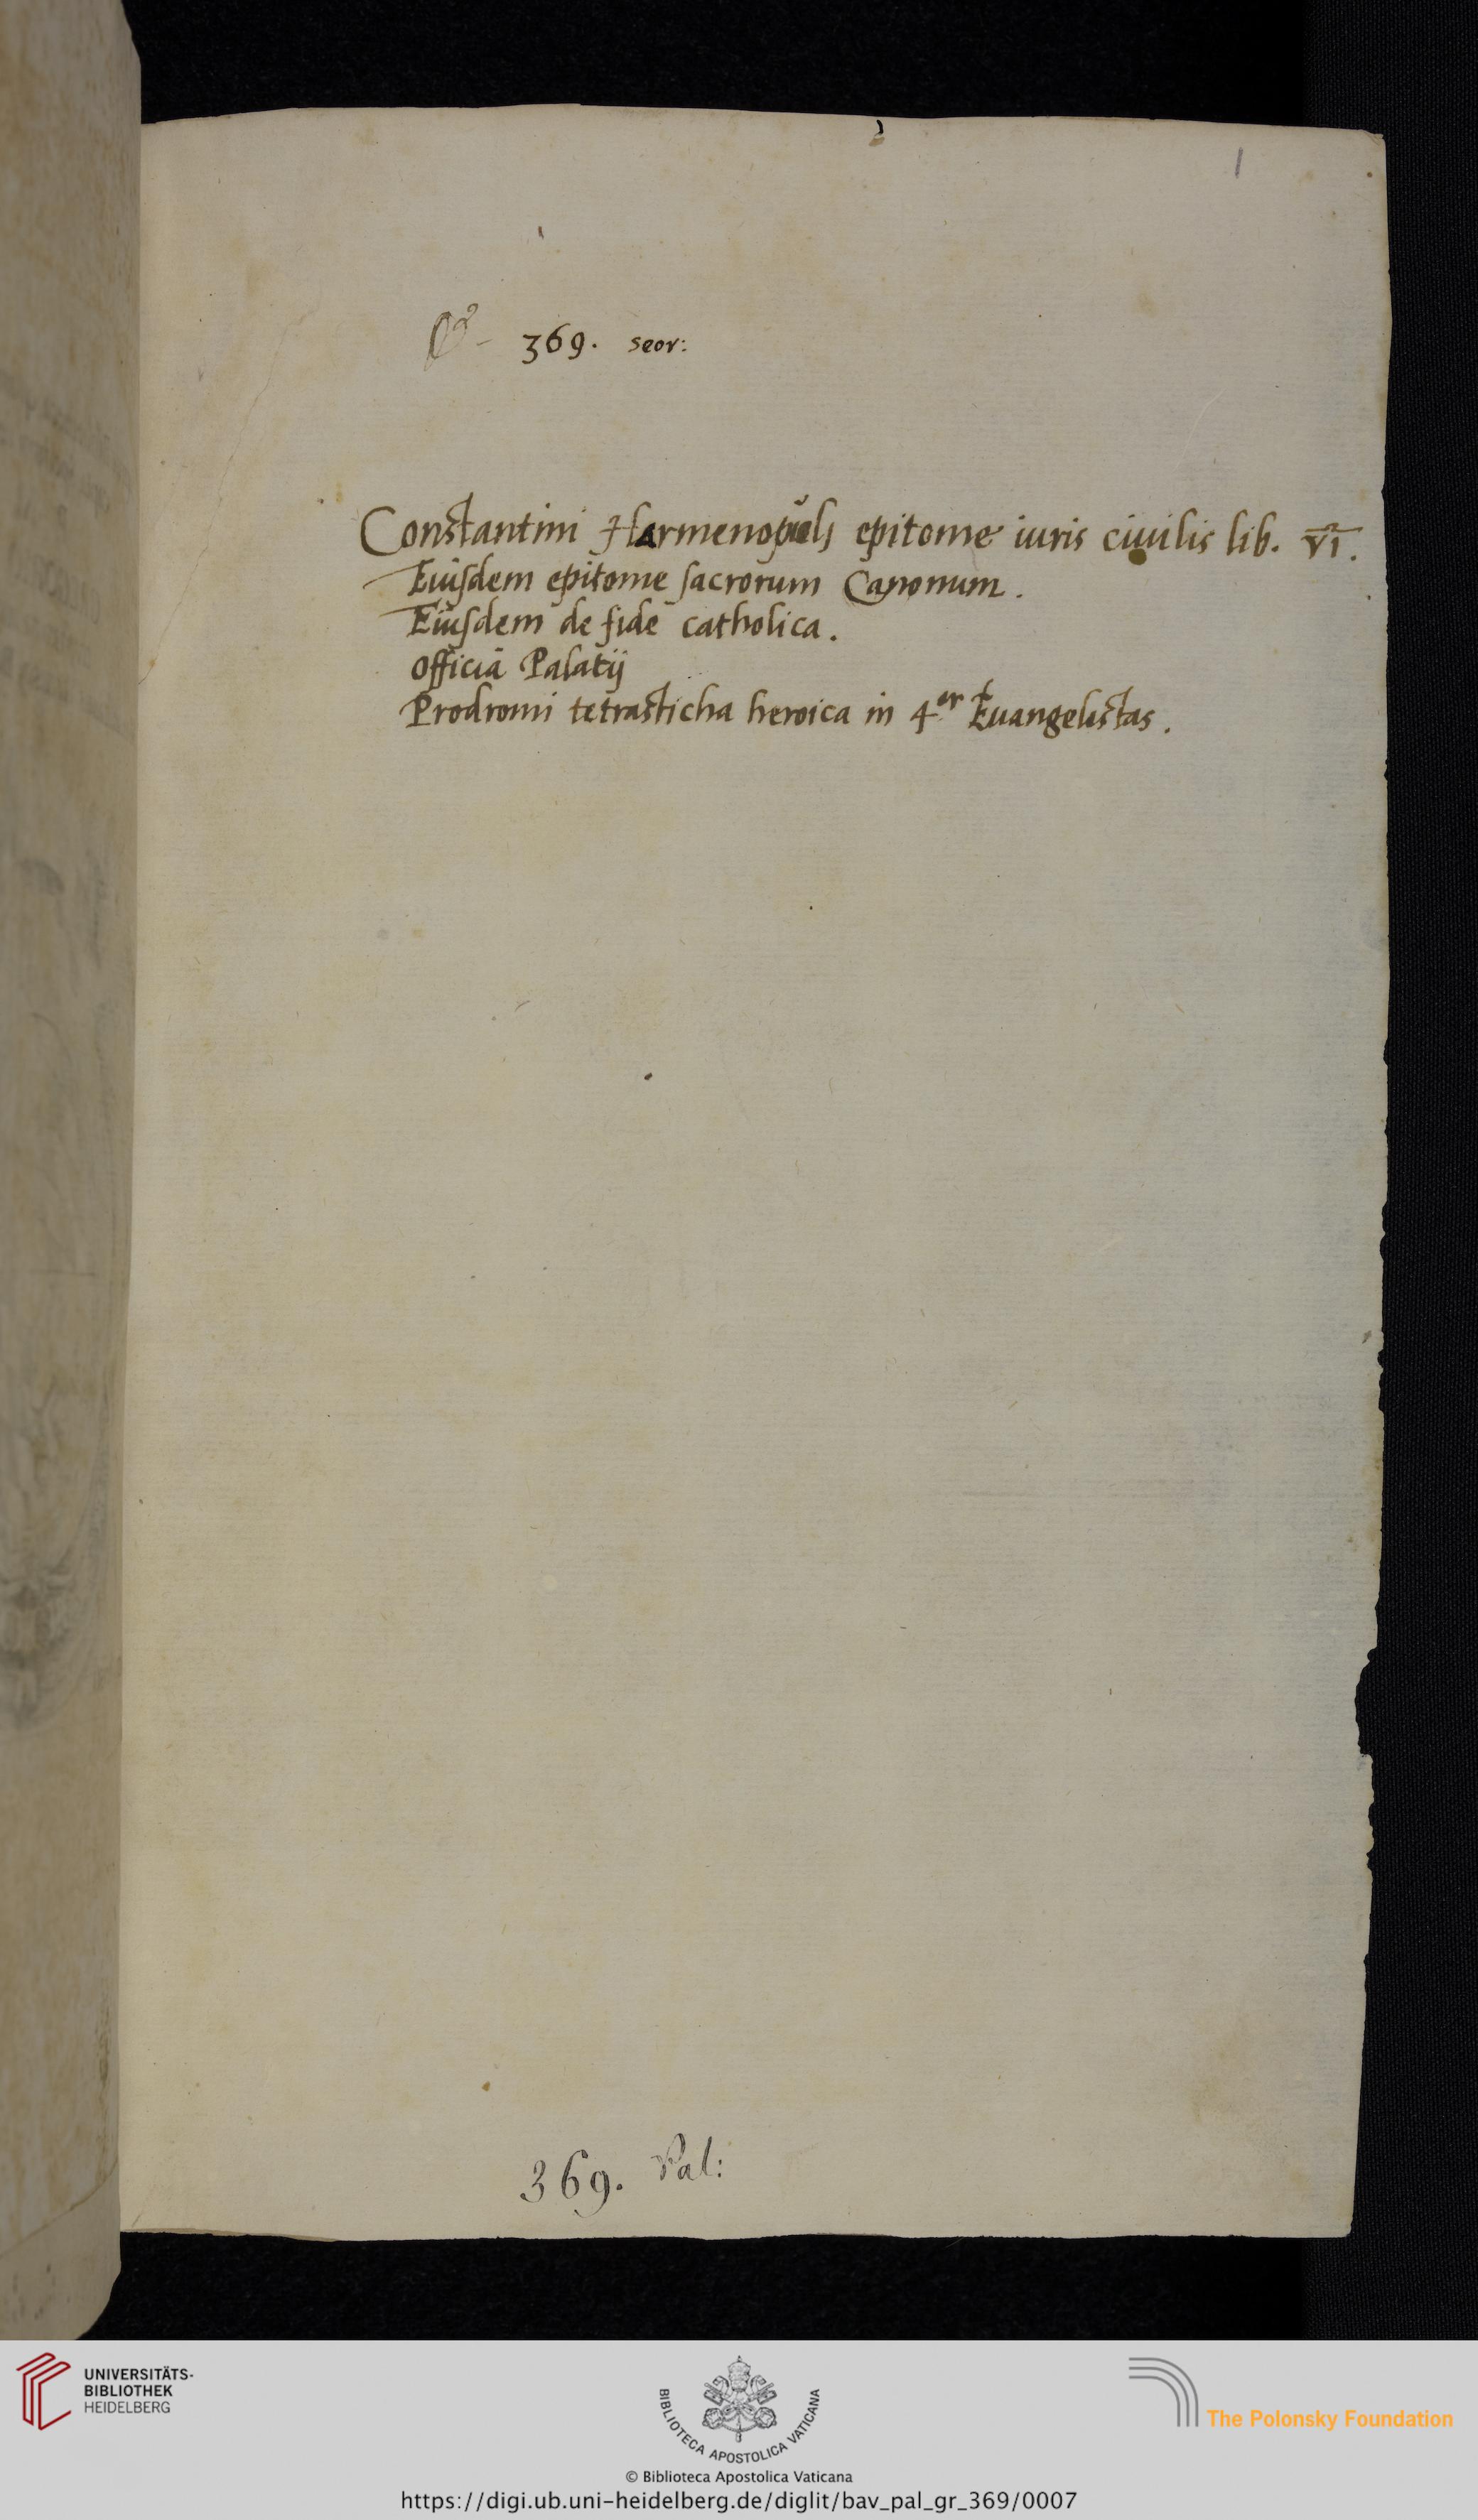 1
369. seor:
Constantini Harmenopuli epitome iuris ciuilis lib. VI.
Eiusdem epitome sacrorum Canonum.
Eiusdem de fide catholica.
Officia Palatij
Prodromi tetrasticha heroica in 4or Euangelistas.
369. Pal:
UNIVERSITÄTS-
BIBLIOTHEK
HEIDELBERG
BIBLIOTECA APOSTOLICA VATICANA
The Polonsky Foundation
© Biblioteca Apostolica Vaticana
https://digi.ub.uni-heidelberg.de/diglit/bav_pal_gr_369/0007